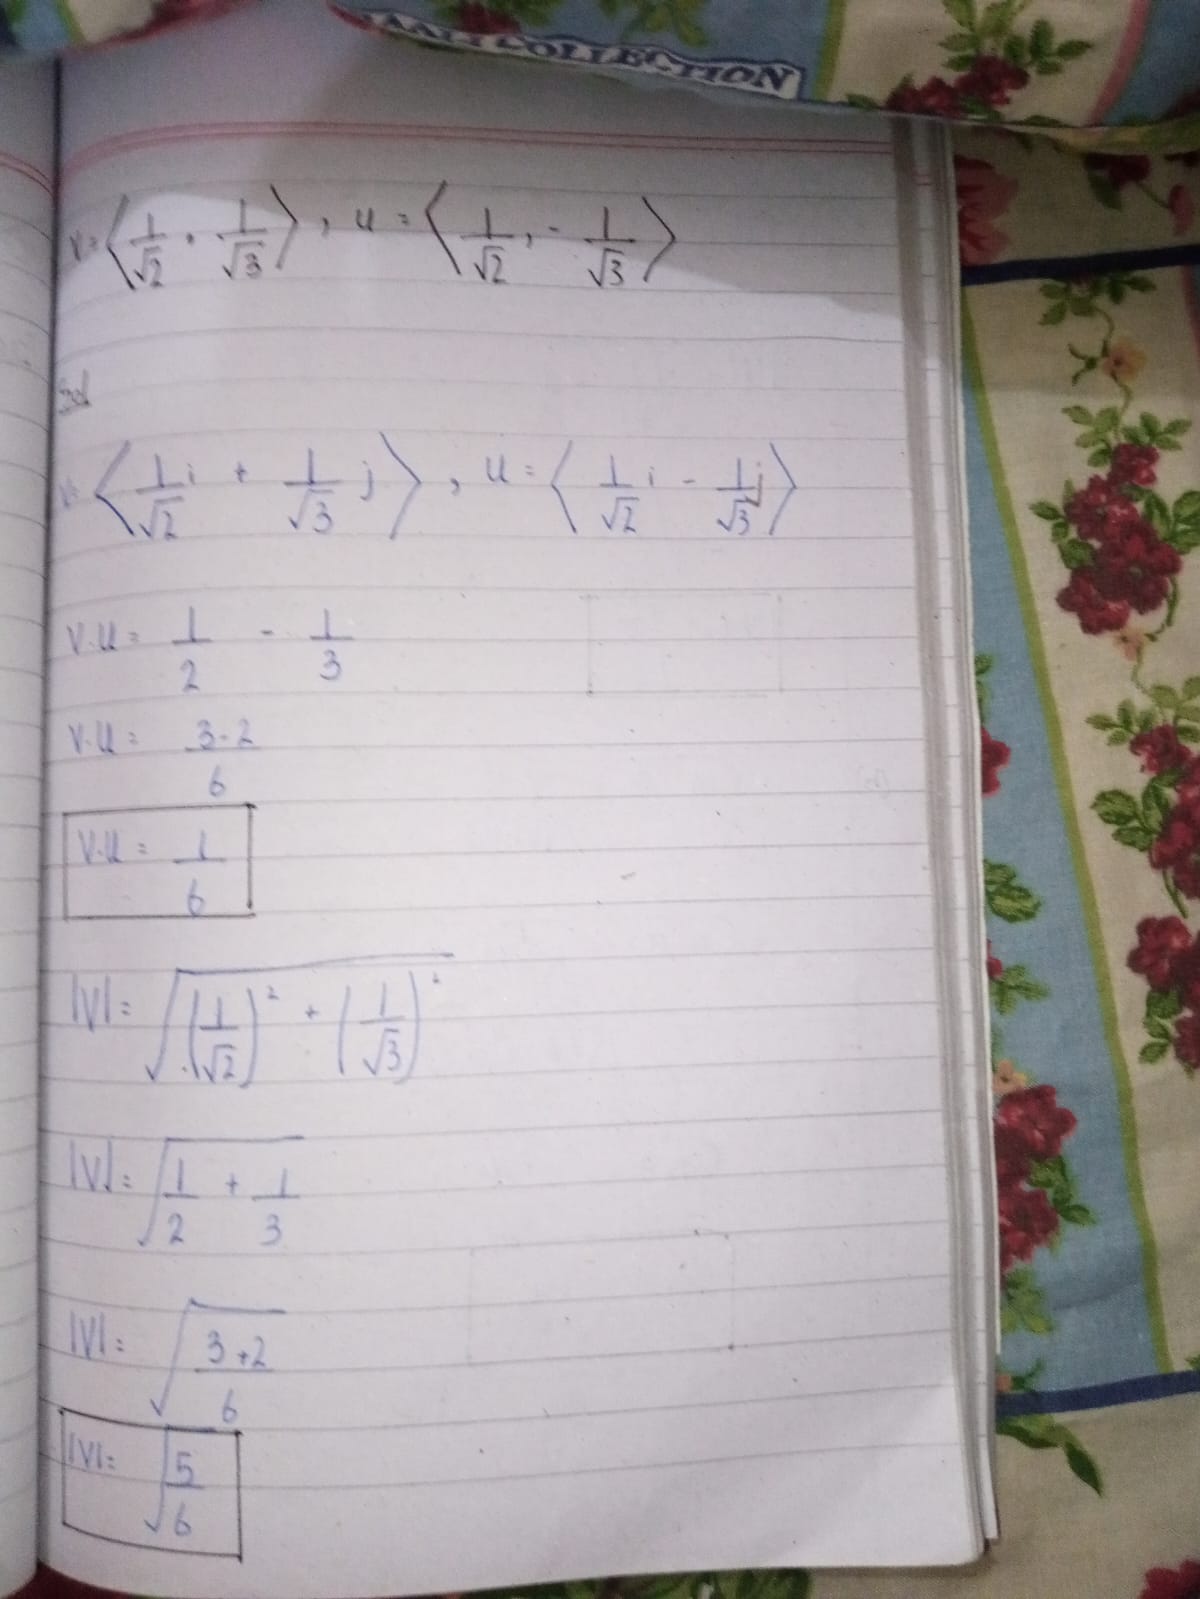 COLLECTION
V = ⟨1/√2, 1/√3⟩, u = ⟨1/√2, - 1/√3⟩
Sol
V= ⟨1/√2 i + 1/√3 j⟩, u = ⟨1/√2 i - 1/√3 j⟩
V.u = 1/2 - 1/3
V.u = 3-2/6
V.u = 1/6
|V| = √((1/√2)² + (1/√3)²)
|V| = √(1/2 + 1/3)
|V| = √(3+2/6)
|V| = √(5/6)